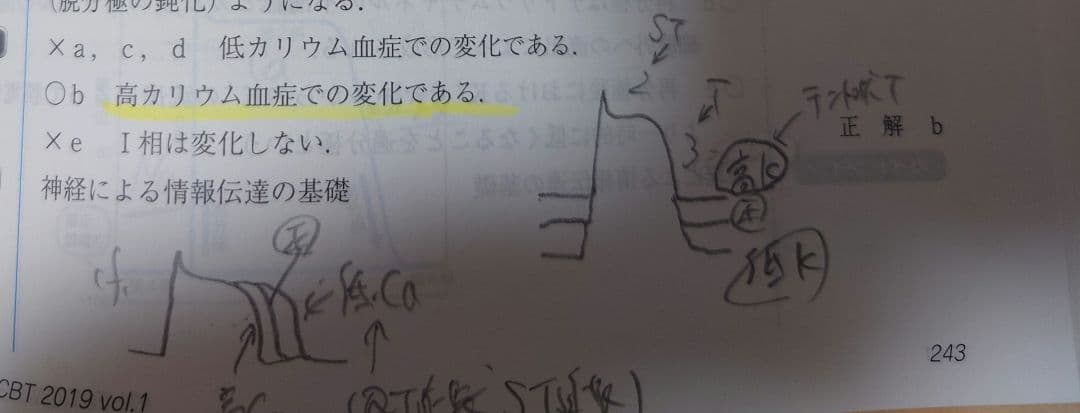 (脱分極の鈍化)ようになる.
×a, c, d 低カリウム血症での変化である.
○b 高カリウム血症での変化である.
×e Ⅰ相は変化しない.
正解 b
神経による情報伝達の基礎
ST
2
T
3
テント状T
高K
正
低K
cf.
正
低Ca
高Ca
(QT延長 ST延長)
243
CBT 2019 vol.1